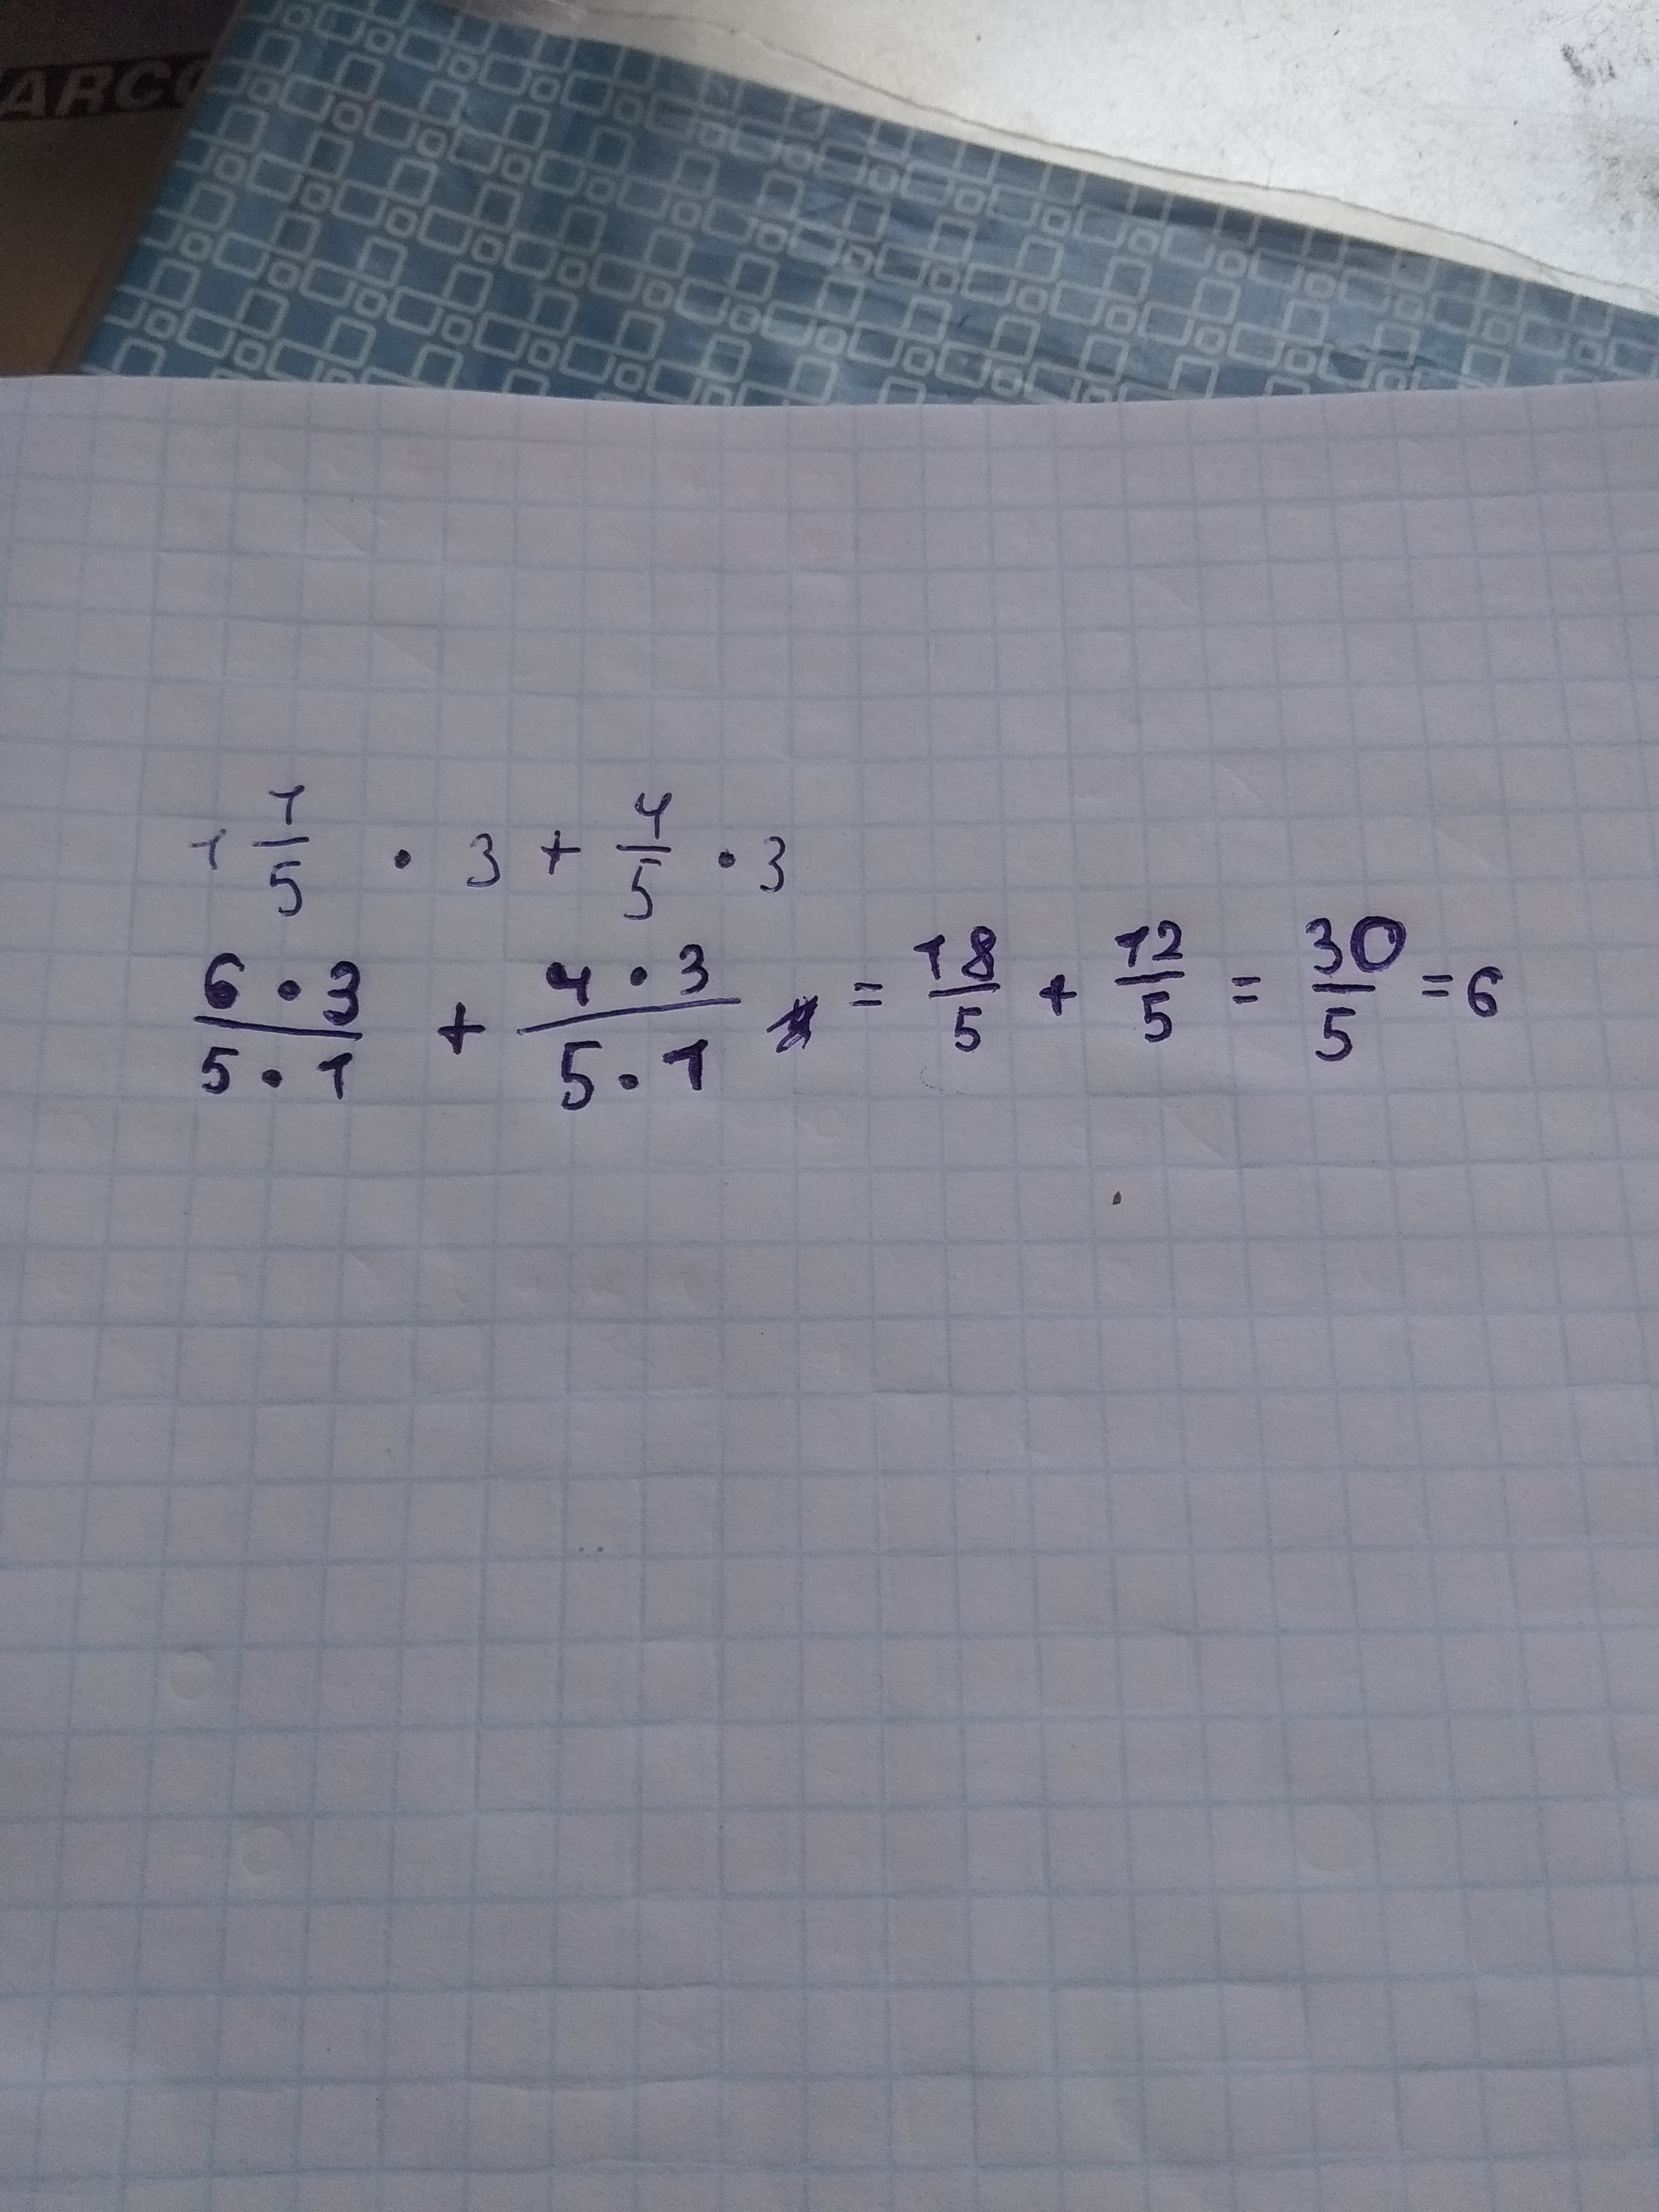 ARCO
1 1/5 · 3 + 4/5 · 3
6 · 3/5 · 1 + 4 · 3/5 · 1 = 18/5 + 12/5 = 30/5 = 6